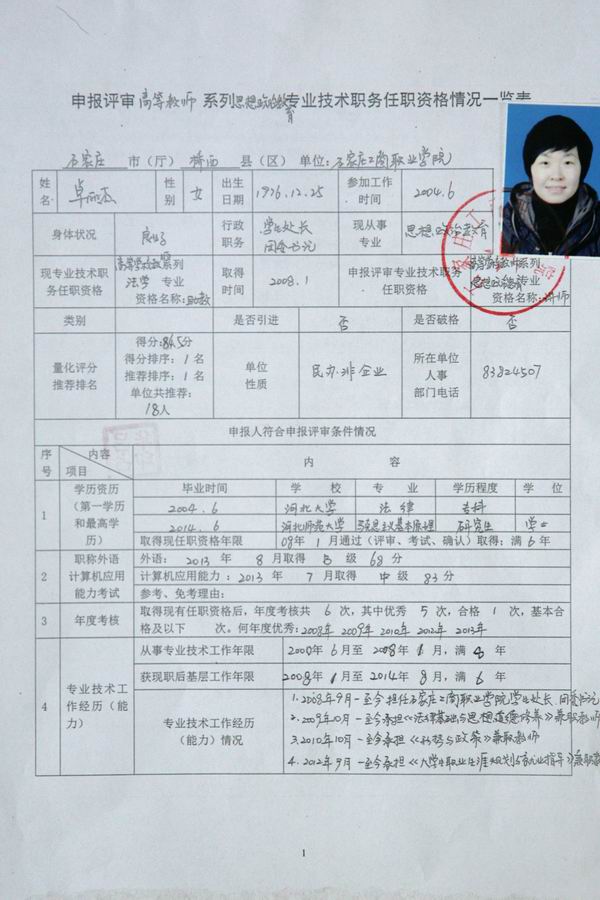 申报评审高等教师系列思想政治教育专业技术职务任职资格情况一览表
石家庄 市(厅) 桥西 县(区) 单位:石家庄工商职业学院
姓名 卓丽杰 性别 女 出生日期 1976.12.25 参加工作时间 2004.6
身体状况 良好 行政职务 学生处长 团委书记 现从事专业 思想政治教育
现专业技术职务任职资格 系列 法学 专业 资格名称:助教 取得时间 2008.1 申报评审专业技术职务任职资格 系列 思想政治教育专业 资格名称:讲师
类别 是否引进 否 是否破格 否
量化评分推荐排名 得分:84.5分 得分排序:1名 推荐排序:1名 单位共推荐:18人 单位性质 民办非企业 所在单位人事部门电话 83824507
申报人符合申报评审条件情况
序号 内容 项目 内 容
1 学历资历(第一学历和最高学历) 毕业时间 学 校 专 业 学历程度 学 位
2004.6 河北大学 法律 专科
2014.6 河北师范大学 马克思主义基本原理 研究生 学士
取得现任职资格年限 08年1月通过(评审、考试、确认)取得:满6年
2 职称外语计算机应用能力考试 外语:2013年8月取得B级68分
计算机应用能力:2013年7月取得中级83分
参考、免考理由:
3 年度考核 取得现有任职资格后,年度考核共6次,其中优秀5次,合格1次,基本合
格及以下 次。何年度优秀:2008年 2009年 2010年 2012年 2013年
4 专业技术工作经历(能力) 从事专业技术工作年限 2004年6月至2008年1月,满4年
获现职后基层工作年限 2008年1月至2014年8月,满6年
专业技术工作经历(能力)情况 1.2008年9月-至今担任石家庄工商职业学院学生处长、团委书记
2.2009年10月-至今承担《法律基础与思想道德修养》兼职教师
3.2010年10月-至今承担《形势与政策》兼职教师
4.2012年9月-至今承担《大学生职业生涯规划与就业指导》兼职教
1